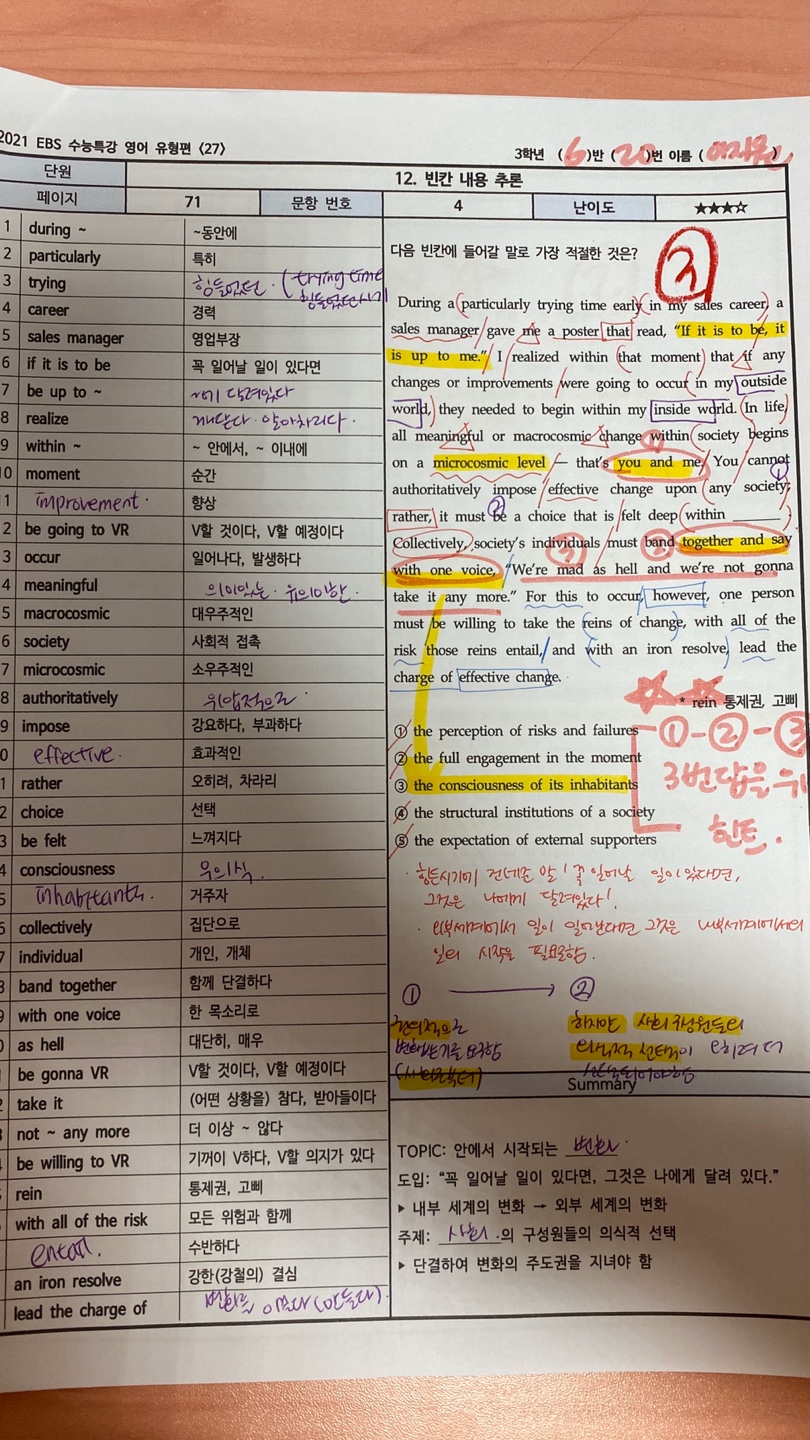 2021 EBS 수능특강 영어 유형편 <27>
3학년 (6)반 (20)번 이름 ( )
단원 12. 빈칸 내용 추론
페이지 71 문항 번호 4 난이도 ★★★☆
1 during ~ ~동안에
2 particularly 특히
3 trying 힘들었던. (trying time
힘들었던 시기
4 career 경력
5 sales manager 영업부장
6 if it is to be 꼭 일어날 일이 있다면
7 be up to ~ ~에 달려있다
8 realize 깨닫다. 알아차리다.
9 within ~ ~ 안에서, ~ 이내에
10 moment 순간
11 improvement. 향상
2 be going to VR V할 것이다, V할 예정이다
3 occur 일어나다, 발생하다
4 meaningful 의미있는. 유의미한.
5 macrocosmic 대우주적인
6 society 사회적 접촉
7 microcosmic 소우주적인
8 authoritatively 위압적으로
9 impose 강요하다, 부과하다
0 effective. 효과적인
1 rather 오히려, 차라리
2 choice 선택
3 be felt 느껴지다
4 consciousness 무의식.
5 inhabitants. 거주자
6 collectively 집단으로
7 individual 개인, 개체
8 band together 함께 단결하다
9 with one voice 한 목소리로
0 as hell 대단히, 매우
be gonna VR V할 것이다, V할 예정이다
take it (어떤 상황을) 참다, 받아들이다
not ~ any more 더 이상 ~ 않다
be willing to VR 기꺼이 V하다, V할 의지가 있다
rein 통제권, 고삐
with all of the risk 모든 위험과 함께
entail. 수반하다
an iron resolve 강한(강철의) 결심
lead the charge of 변화를 이끌다(만들다).
다음 빈칸에 들어갈 말로 가장 적절한 것은?
③
During a particularly trying time early in my sales career, a
sales manager gave me a poster that read, "If it is to be, it
is up to me." I realized within that moment that if any
changes or improvements were going to occur in my outside
world, they needed to begin within my inside world. In life,
all meaningful or macrocosmic change within society begins
on a microcosmic level — that's you and me. You cannot
authoritatively impose effective change upon any society;
rather, it must be a choice that is felt deep within ______.
Collectively, society's individuals must band together and say
with one voice, "We're mad as hell and we're not gonna
take it any more." For this to occur, however, one person
must be willing to take the reins of change, with all of the
risk those reins entail, and with an iron resolve, lead the
charge of effective change.
* rein 통제권, 고삐
① the perception of risks and failures
② the full engagement in the moment
③ the consciousness of its inhabitants
④ the structural institutions of a society
⑤ the expectation of external supporters
①-②-③
3번답을 위
한 힌트.
· 힘든시기에 건네준 말! 꼭 일어날 일이 있다면,
그것은 나에게 달려있다!
· 외부세계에서 일이 일어난다면 그것은 내부세계에서의
일의 시작을 필요로함.
① → ②
권위적으로 하지만 사회 구성원들의
변화하기를 요구함 의식적 선택이 오히려 더
(사회로부터)
Summary
TOPIC: 안에서 시작되는 변화.
도입: "꼭 일어날 일이 있다면, 그것은 나에게 달려 있다."
▸ 내부 세계의 변화 → 외부 세계의 변화
주제: 사회.의 구성원들의 의식적 선택
▸ 단결하여 변화의 주도권을 지녀야 함